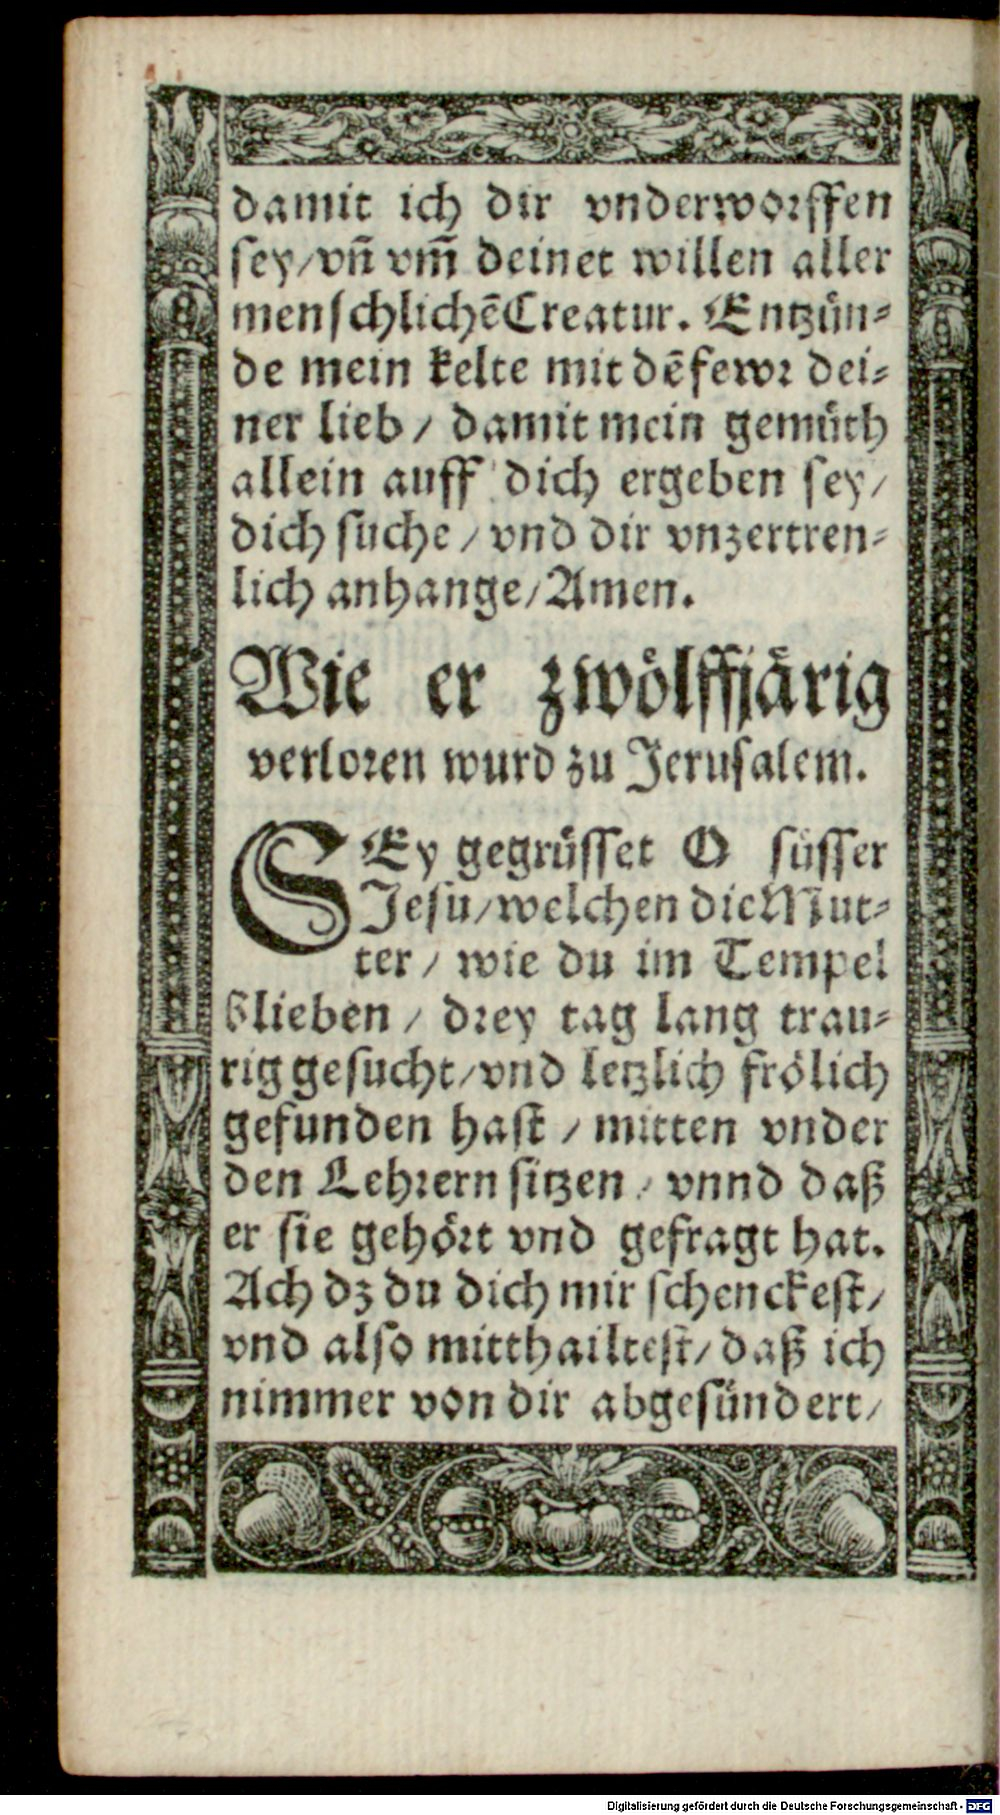 damit ich dir vnderworffen
sey/vñ vm̃ deinet willen aller
menschlichẽ Creatur. Entzün⸗
de mein kelte mit dẽ fewr dei⸗
ner lieb / damit mein gemüth
allein auff dich ergeben sey/
dich suche / vnd dir vnzertren⸗
lich anhange/Amen.
Wie er zwölffjärig
verloren wurd zu Jerusalem.
SEy gegrüsset O süsser
Jesu/welchen die Mut⸗
ter / wie du im Tempel
blieben / drey tag lang trau⸗
rig gesucht/vnd letzlich frölich
gefunden hast / mitten vnder
den Lehrern sitzen / vnnd daß
er sie gehört vnd gefragt hat.
Ach dz du dich mir schenckest/
vnd also mitthailtest/daß ich
nimmer von dir abgesündert/
Digitalisierung gefördert durch die Deutsche Forschungsgemeinschaft - DFG